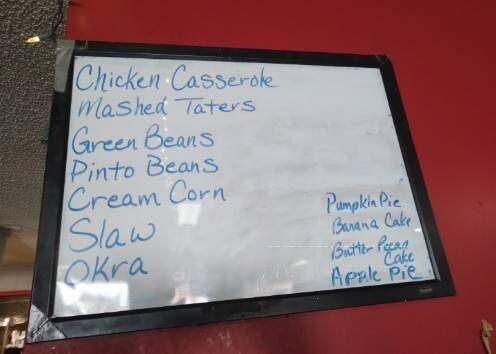 Chicken Casserole
Mashed Taters
Green Beans
Pinto Beans
Cream Corn
Slaw
Okra
Pumpkin Pie
Banana Cake
Butter Pecan
Cake
Apple Pie